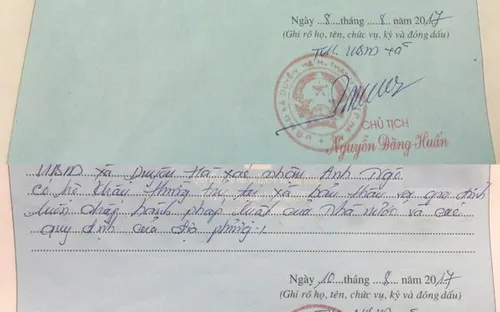 Ngày 8 tháng 8 năm 2017
(Ghi rõ họ, tên, chức vụ, ký và đóng dấu)
TM. UBND xã
CHỦ TỊCH
Nguyễn Đăng Huấn
UBND xã Duyên Hà xác nhận Anh Ngô
có hộ khẩu thường trú tại xã bản thân và gia đình
luôn chấp hành pháp luật của nhà nước và các
quy định của địa phương.
Ngày 10 tháng 8 năm 2017
(Ghi rõ họ, tên, chức vụ, ký và đóng dấu)